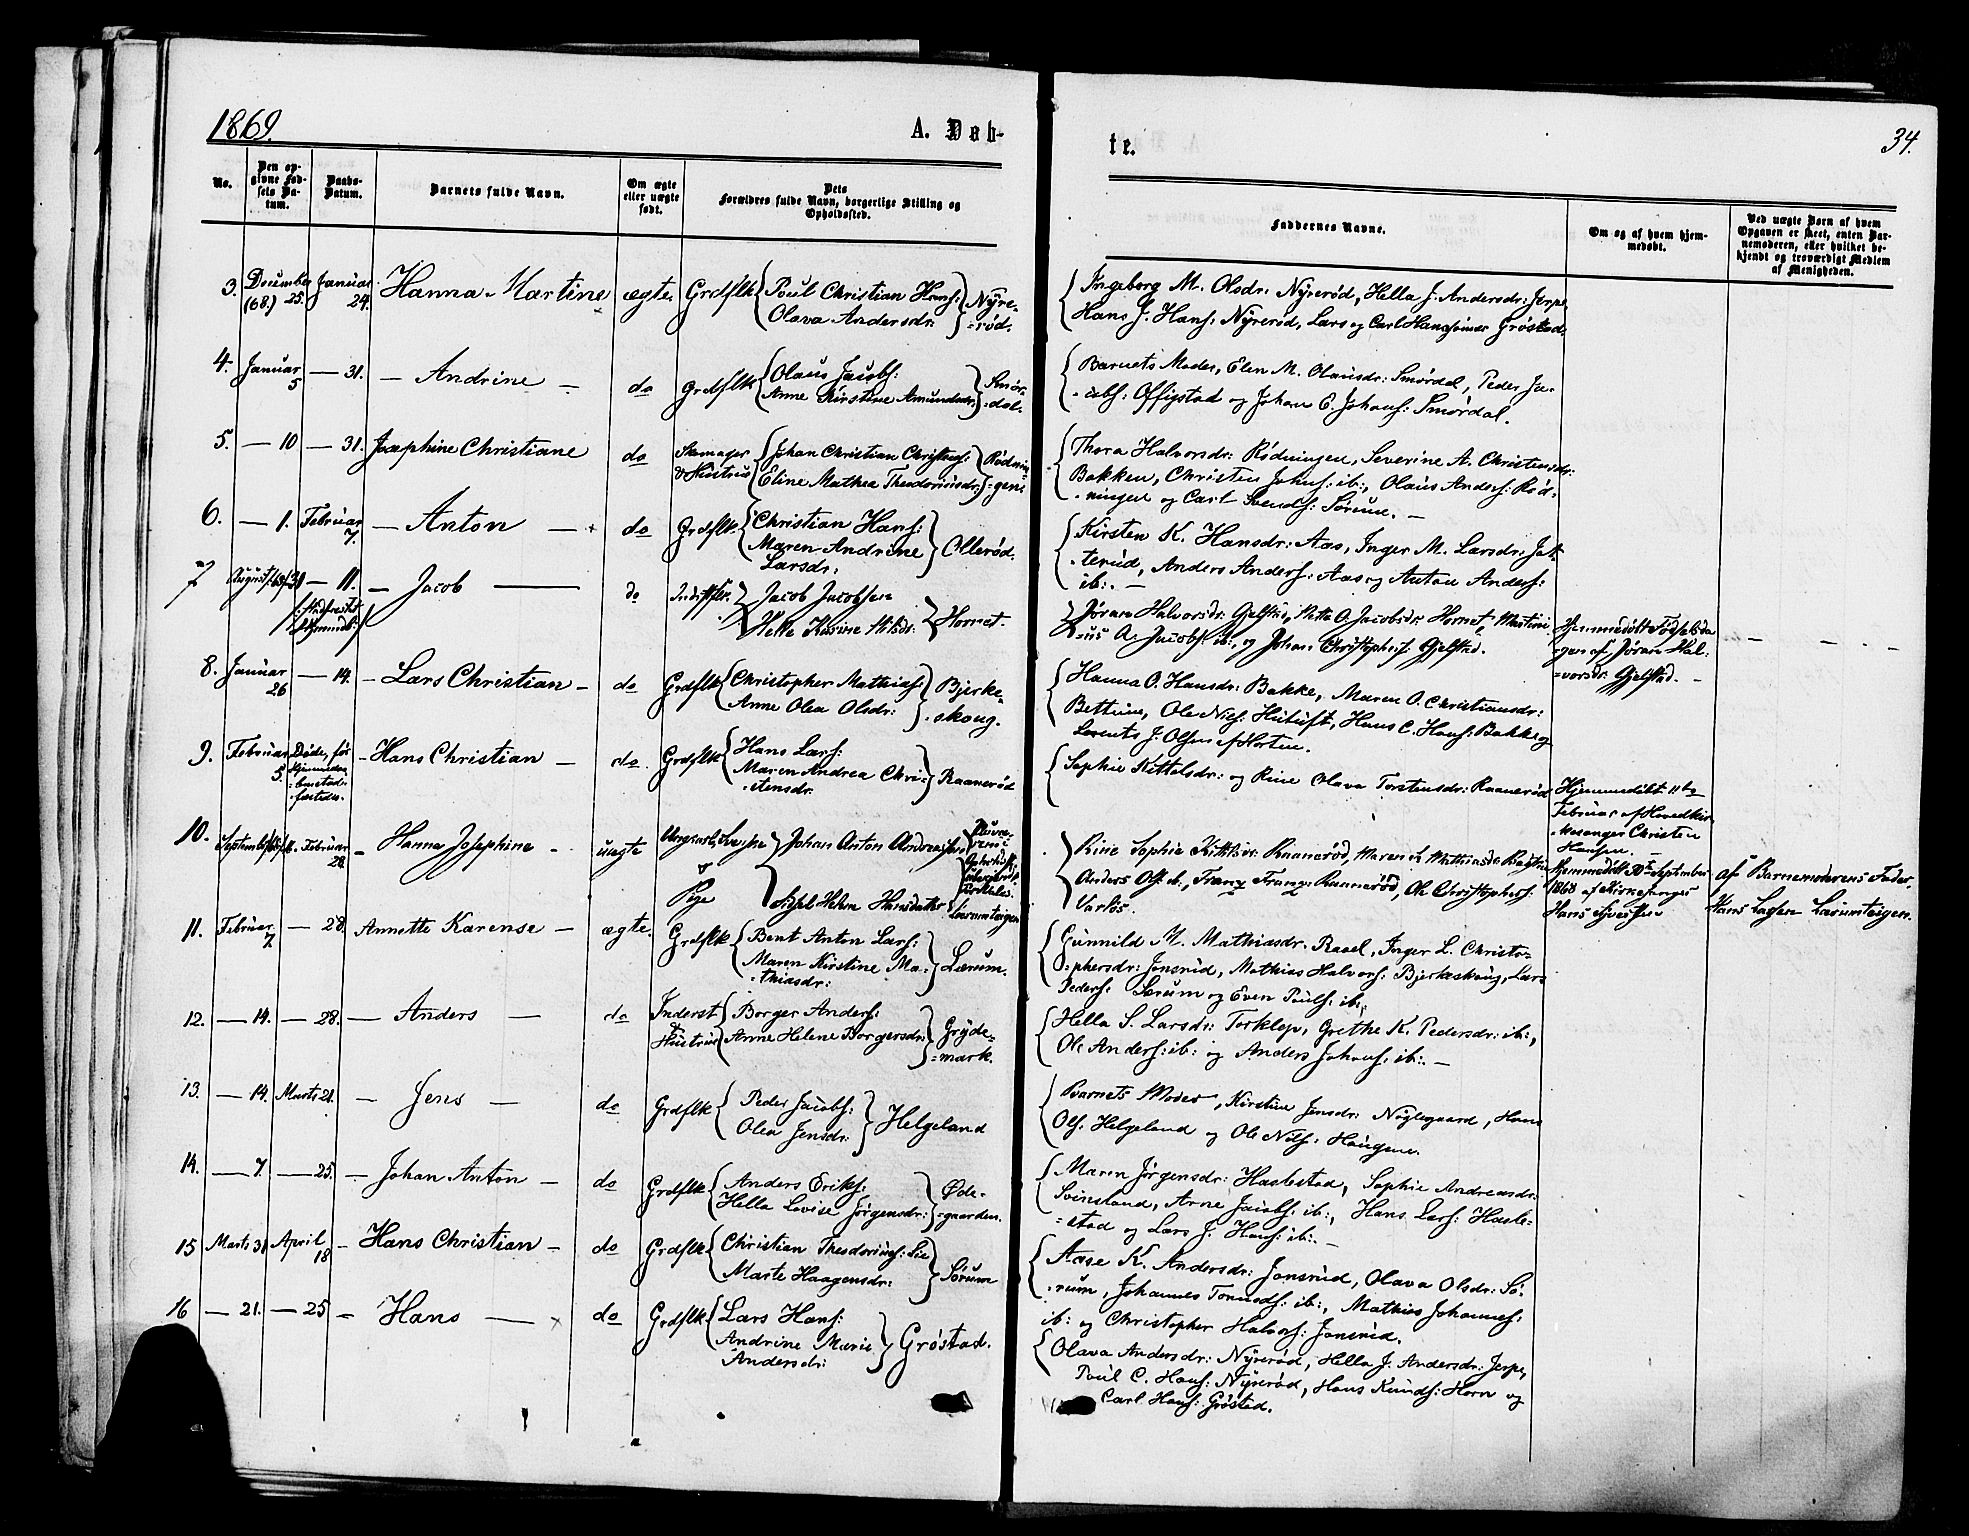 1869.
A. Døb-
te.
34.
No.
Den op-
givne Fød-
sels Da-
tum.
Daabs-
Datum.
Barnets fulde Navn.
Om ægte
eller uægte
født.
Dets
Forældres fulde Navn, borgerlige Stilling og
Opholdssted.
Faddernes Navne.
Om og af hvem hjem-
medøbt.
Ved uægte Børn af hvem
Opgaven er skeet, enten Bar-
nemoderen, eller hvilket be-
kjendt og troværdigt Medlem
af Menigheden.
3. December (68.) 25. Januar 24. Hanna Martine ægte Grdflk
Poul Christian Hans:
Olava Andersdr:
Nyre-
=rød.
Ingeborg M. Olsdr: Nyrerød, Hella J. Andersdr: Jerpe,
Hans J. Hans: Nyrerød, Lars og Carl Hanssønner Grøstad.
4. Januar 5 — 31. — Andrine — do Grdflk
Olaus Jacobs:
Anne Kirstine Amundsdr:
Smør-
=dal.
Barnets Moder, Elen M. Olausdr: Smørdal, Peder Ja-
=cobs: Offigstad og Johan E. Johans: Smørdal.
5. — 10 — 31. Josephine Christiane do Skomager
& Hustrue
Johan Christian Christens:
Eline Mathea Theodoriusdr:
Rødnin-
=gen
Thora Halvorsdr: Rødningen, Severine A. Christensdr:
Bakken, Christen Johns: ib:, Olaus Anders: Rød-
=ningen og Carl Svends: Sørum. —
6. — 1. Februar 7. — Anton — do Grdflk
Christian Hans:
Maren Andrine
Larsdr:
Ollerød.
Kirsten K. Hansdr: Aas, Inger M. Larsdr:
=terud, Anders Anders: Aas og Anton Anders:
ib: —
7 August — 11. — Jacob — do
Stadfæstet
Hjemmedb:
Jacob Jacobsen
Helle Karine Nilsdr:
Hornet.
Jøran Halvorsdr: Gjelstad, Mette O. Jacobsdr: Hornet, Martini-
=us A. Jacobs: ib:, og Johan Christophers: Gjelstad.
Hjemmedøbt Fødselsda
=gen af Jøran Hal-
=vorsdr: Gjelstad. —
8. Januar 26 — 14. — Lars Christian — do Grdflk
Christopher Mathias:
Anne Olea Olsdr:
Bjerke-
=skoug.
Hanna O. Hansdr: Bakke, Maren O. Christiansdr:
Bettum, Ole Niels: Hutuft, Hans C. Hans: Bakke og
Lorents J. Olsen af Horten.
9. Februar 5. Døde, før
Hjemmedaa-
=ben stad-
=fæstedes. — Hans Christian — do. Grdflk
Hans Lars:
Maren Andrea Chri-
=stensdr:
Raanerød
Sophie Kittelsdr: og Rine Olava Torstensdr: Raanerød
Hjemmedøbt 11te
Februar af Hovedkir-
=kesanger Christen
Hansen. —
10. September Februar 28. — Hanna Josephine — uægte
Ungkarl &
Pige
Johan Anton Andreassen
Sissel Helene Hansdatter
Lærumteigen
Rine Sophie Kittilsdr: Raanerød, Maren L. Mathiasdr:
Anders Ols: ib:, Franz Franz: Raanerød, Ole Christophers:
Varlös.
Hjemmedøbt 30te September
1868 af Kirkesanger
Hans
af Barnemoderens Fader,
Hans Larsen Lærumteigen.
11. Februar 7. — 28. Annette Karense — ægte. Grdflk
Bent Anton Lars:
Maren Kirstine Ma-
=thiasdr:
Lærum.
Gunnild M. Mathiasdr: Raael, Inger L. Christo-
=phersdr: Jonsrud, Mathias Halvors: Bjerkeskoug, Lars
Peders: Sørum og Even Pouls: ib:,
12. — 14. — 28. — Anders — do Inderst
& Hustrue
Borger Anders:
Anne Helene Borgersdr:
Gryde-
=mark.
Hella S. Larsdr: Torklep, Grethe K. Pedersdr: ib:,
Ole Anders: ib: og Anders Johans: ib:. —
13. — 14. Marts 21. — Jens — do Grdflk
Peder Jacobs:
Olea Jensdr:
Helgeland
Barnets Moder, Kirstine Jensdr: Nøglegaard, Hans
Ols: Helgeland og Ole Nils: Haugene.
14. — 7. — 25. — Johan Anton — do Grdflk
Anders Eriks:
Hella Lovise Jørgensdr:
Øde-
=gaarden.
Maren Jørgensdr: Haslestad, Sophie Andreasdr:
Svinsland, Arne Jacobs: ib:, Hans Lars: Hasle-
=stad og Lars J. Hans: ib:. —
15 Marts 31 April 18 — Hans Christian — do Grdflk
Christian Theodorius: Lie
Marte Haagensdr:
Sørum
Aase K. Andersdr: Jonsrud, Olava Olsdr: Sø-
=rum, Johannes ib:, Mathias Johannes:
ib: og Christopher Halvors: Jonsrud.
16 — 21. — 25 — Hans — do Grdflk
Lars Hans:
Andrine Marie
Andersdr:
Grøstad.
Olava Andersdr: Nyrerød, Hella J. Andersdr: Jerpe,
Poul C. Hans: Nyrerød, Hans Knuds: Horn og
Carl Hans: Grøstad.